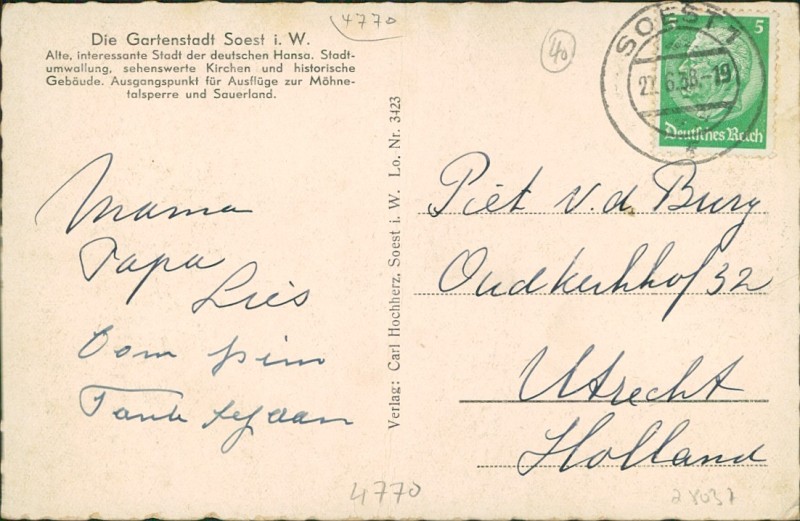 4770
40
Die Gartenstadt Soest i. W.
Alte, interessante Stadt der deutschen Hansa. Stadt-
umwallung, sehenswerte Kirchen und historische
Gebäude. Ausgangspunkt für Ausflüge zur Möhne-
talsperre und Sauerland.
SOEST 1
22.6.38.-19
5
Deutsches Reich
Mama
Papa
Lies
Oom Pim
Tante
Verlag: Carl Hochherz, Soest i. W. Lo. Nr. 3423
Piet v.d. Burg
Oudkerkhof 32
Utrecht
Holland
4770